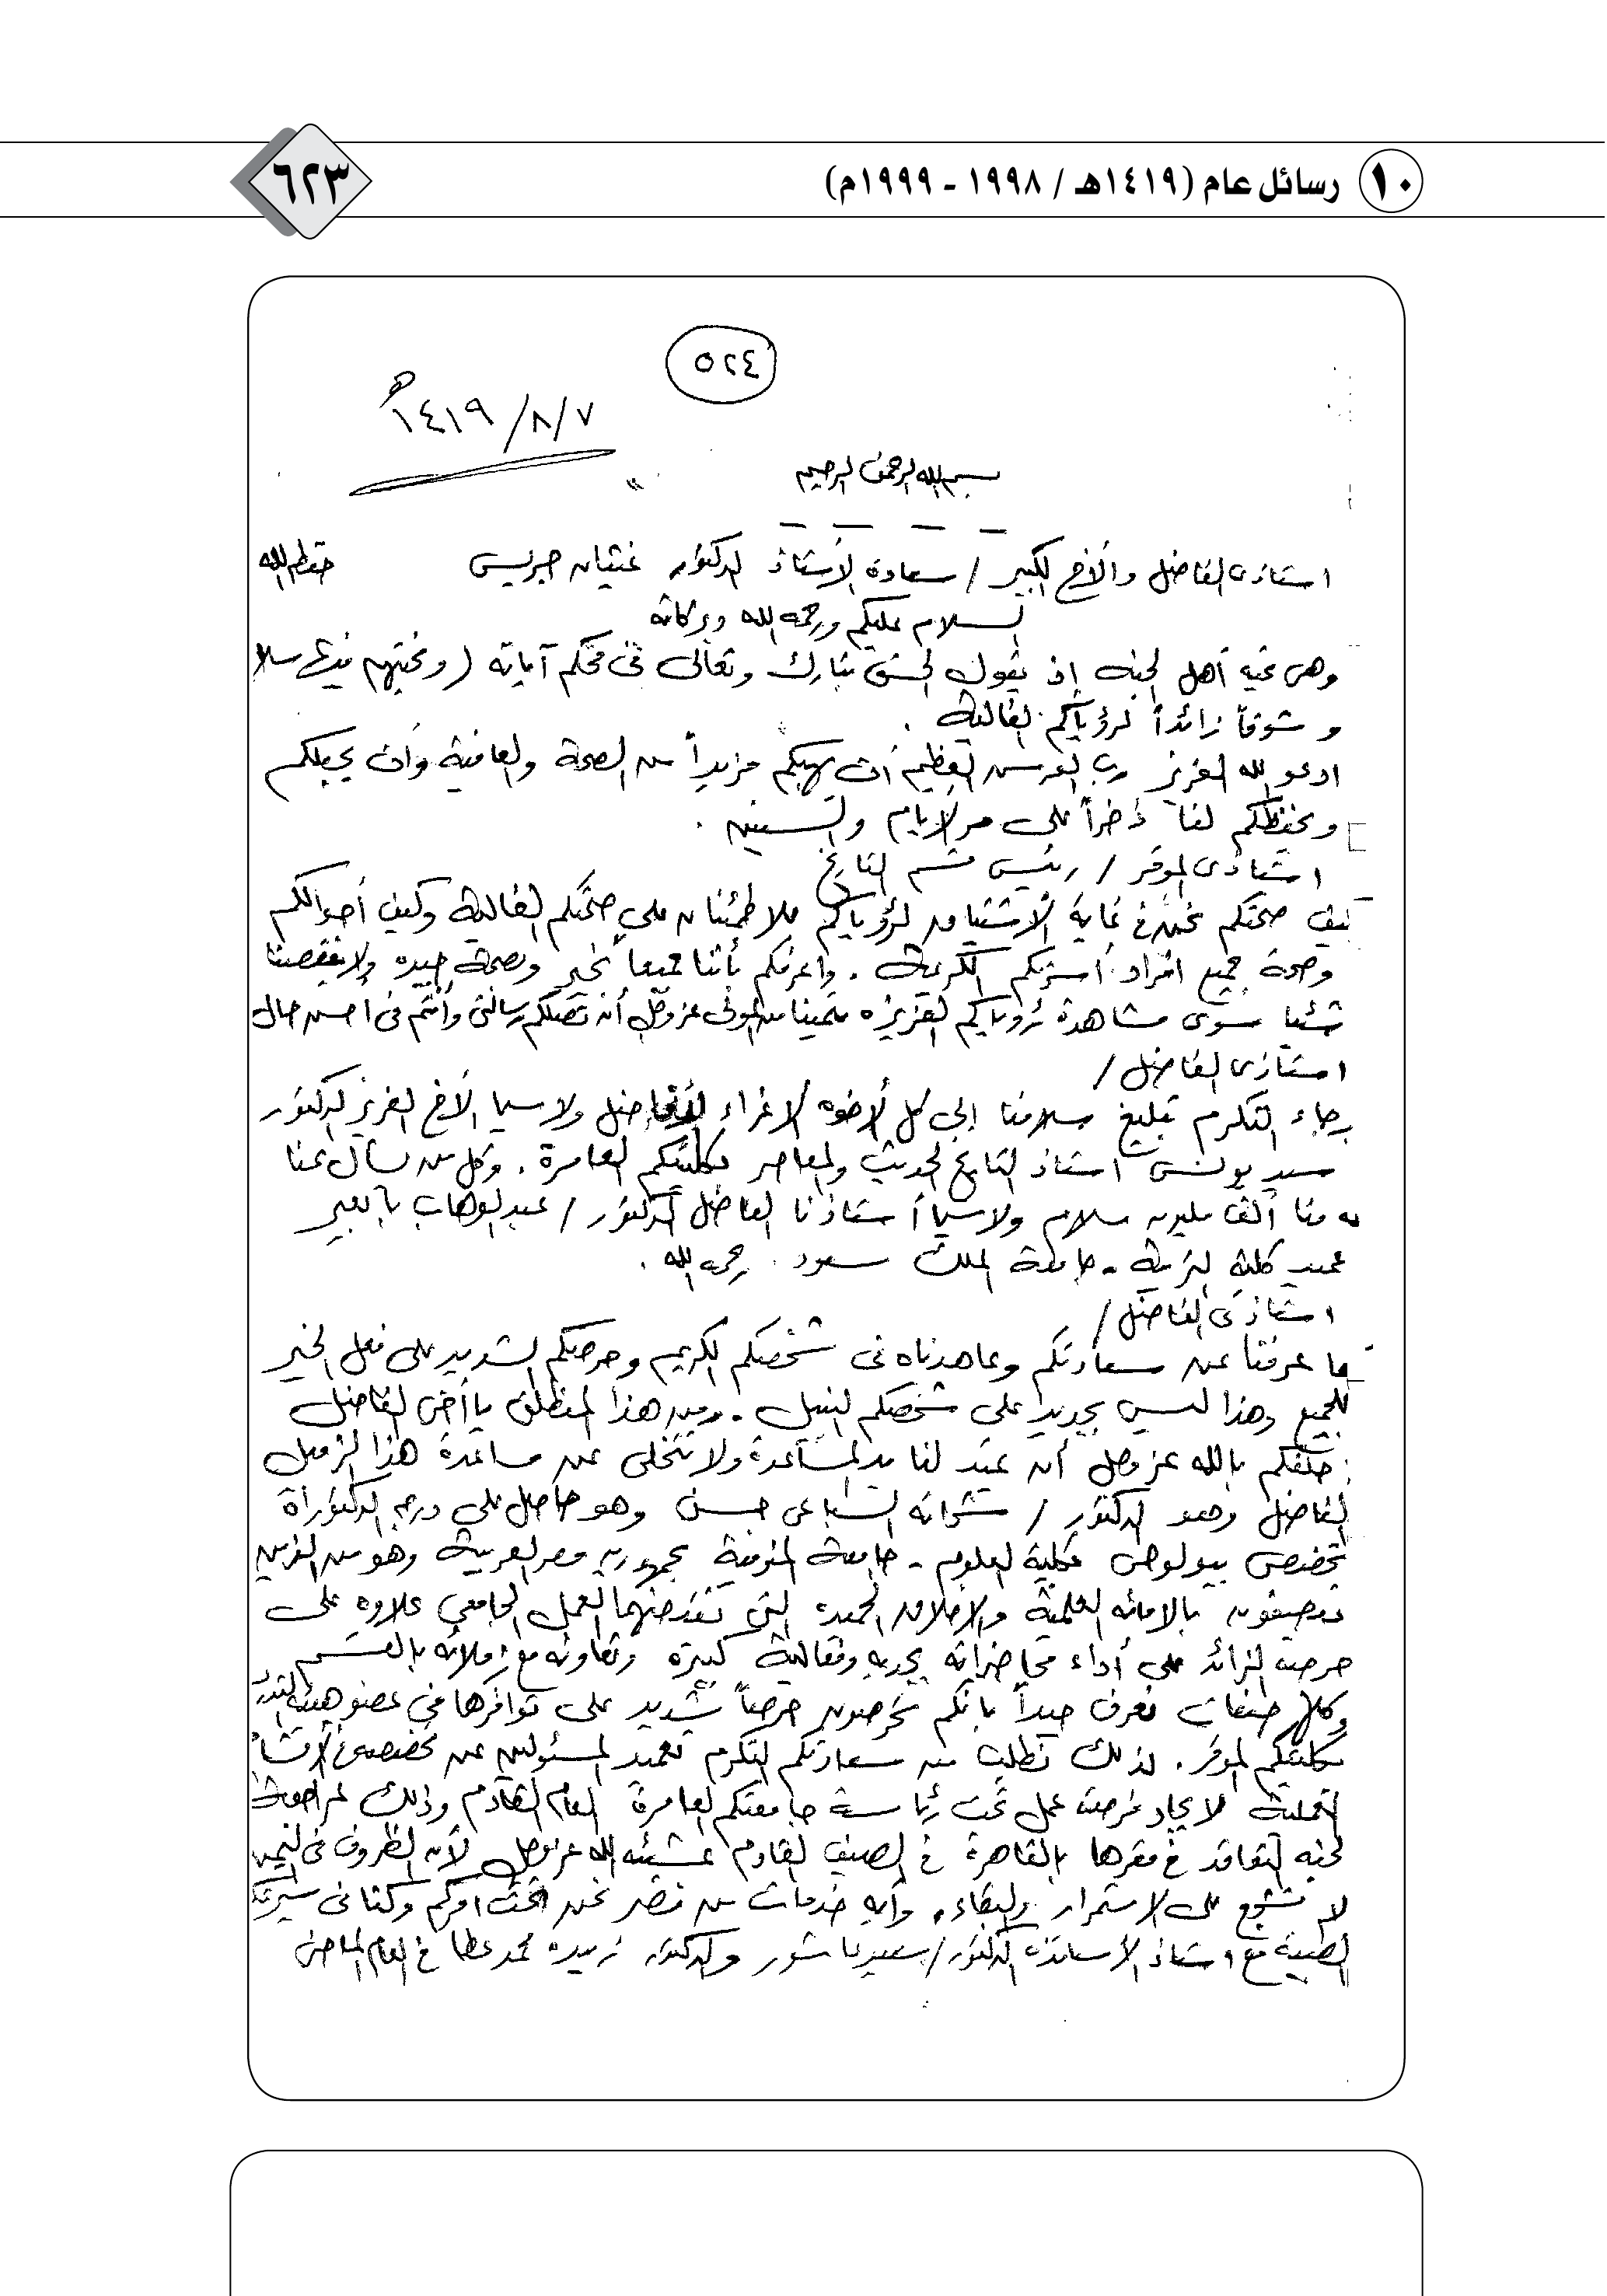 ١٠ رسائل عام (١٤١٩هـ / ١٩٩٨ - ١٩٩٩م)
٦٢٣
٥٢٤
١٤١٩/٨/٧هـ
بسم الله الرحمن الرحيم
استاذى الفاضل والأخ الكبير / سعادة الأستاذ الدكتور غيثان جريس حفظه الله
السلام عليكم ورحمة الله وبركاته
وهى تحية أهل الجنة إذ يقول الحق تبارك وتعالى فى محكم آياته (وتحيتهم فيها سلام
و شوقاً زائداً لرؤياكم الغالية .
ادعو الله العزيز رب العرش العظيم أن يهبكم مزيداً من الصحة والعافية وأن يجعلكم
ويحفظكم لنا ذخراً على مر الايام والسنين .
استاذى الموقر / رئيس قسم التاريخ
كيف صحتكم نحن فى غاية الاشتياق لرؤياكم للاطمئنان على صحتكم الغالية وكيف أحوالكم
وصحة جميع افراد أسرتكم الكريمة . واعرفكم بأننا جميعاً بخير وبصحة جيده ولا ينقصنا
شئيا سوى مشاهدة رؤياكم العزيزه متمينا من المولى عز وجل أن تصلكم رسالتى وأنتم فى احسن حال
استاذى الفاضل /
رجاء التكرم تبليغ سلامنا إلى كل الأخوه الاعزاء الأفاضل ولاسيما الأخ العزيز الدكتور
سيد يونس استاذ التاريخ الحديث والمعاصر بكليتكم العامرة . وكل من يسأل عنا
له منا ألف مليون سلام ولاسيما أستاذنا الفاضل الدكتور / عبدالوهاب بابعير
عميد كلية التربية - جامعة الملك سعود . رحمه الله .
استاذى الفاضل /
ما عرفنا عن سعادتكم وعاهدناه فى شخصكم الكريم وحرصكم الشديد على فعل الخير
للجميع وهذا ليس بجديداً على شخصكم النبيل . ومن هذا المنطلق يا أخى الفاضل
حلفكم بالله عز وجل أن تمد لنا يد المساعدة ولا تتخلى عن مساعدة هذا الزميل
الفاضل وهو الدكتور / السباعى حسن وهو حاصل على درجة الدكتوراة
تخصص بيولوجى بكلية العلوم - جامعة المنوفية بجمهورية مصر العربية وهو من الذين
يتصيفون بالامانه العلمية والاخلاق الحميده التى العمل الجامعى علاوه على
حرصه الزائد على أداء محاضراته بجديه وفعالية كبيرة وتعاونه مع زملائه بالقسم
وكلها صفات نعرف جيداً بانكم تحرصون حرصاً شديد على توافرها فى عضو هيئة التدريس
بكليتكم الموقر . لذلك نطلب من سعادتكم التكرم تعميد المسئولين عن تخصص
لايجاد فرصت عمل تحت رئاسة جامعتكم العامرة العام القادم وذلك
لجنه التعاقد فى مقرها بالقاهرة فى الصيف القادم بمشيئه الله عز وجل لأن الظروف فى اليمن
لا تشجع على الاستمرار والبقاء . وأيه خدمات من مصر نحن تحت امركم وكنا فى سيرتكم
الطيبة مع استاذ الأساتذه الدكتور / سعيد عاشور والدكتوره زبيده محمد عطا فى العام الماضى